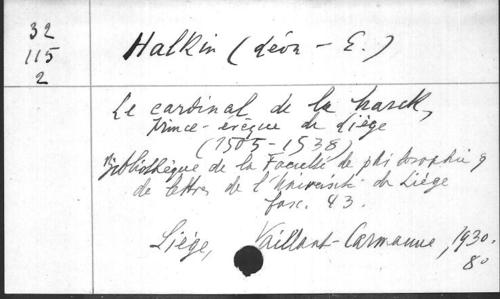 32
115
2
Halkin (Léon-E.)
Le cardinal de la Marck,
Prince-évêque de Liège
(1505-1538)
Bibliothèque de la Faculté de philosophie &
de lettres de l'Université de Liège
fasc. 43.
Liège, Vaillant-Carmanne, 1930.
8°